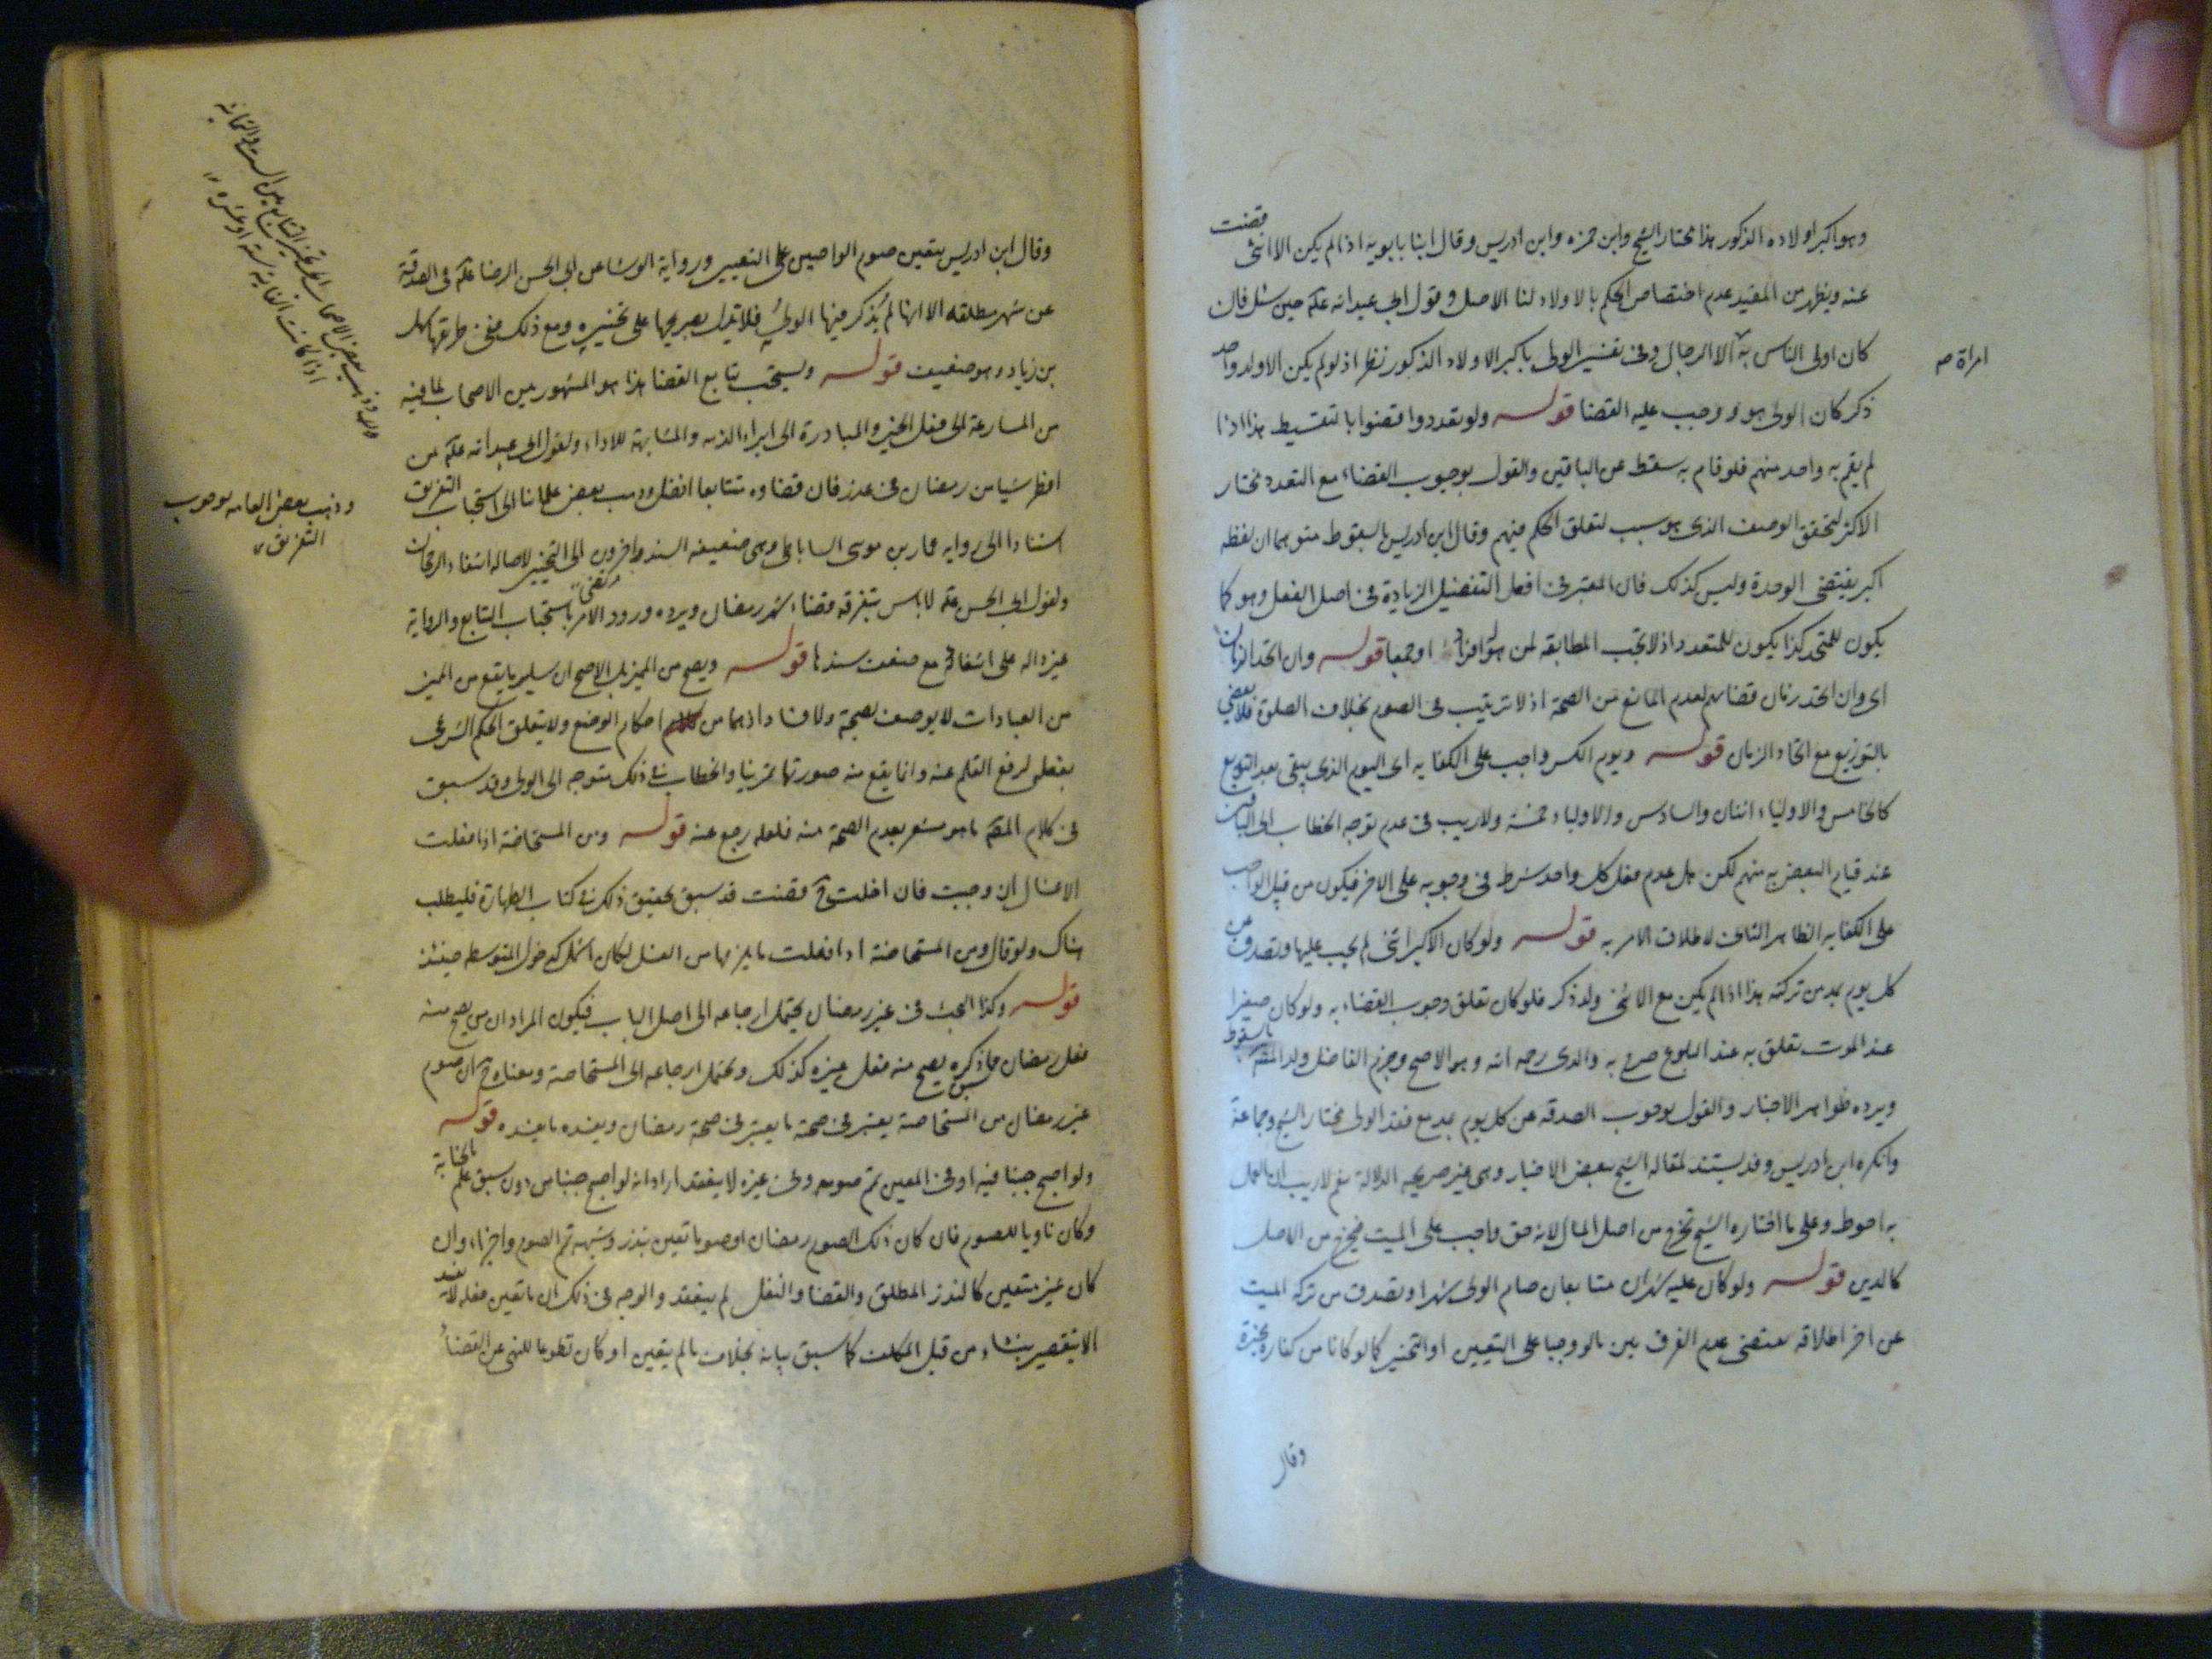 وهو اكبر اولاده الذكور هذا مختار الشيخ وابن حمزه وابن ادريس وقال ابنا بابويه اذا لم يكن الا انثى قضت
عنه ويظهر من المفيد عدم اختصاص الحكم بالاولاد لنا الاصل وقول ابي عبد الله علم حين سئل فان
كان اولى الناس به الا الرجال وفي تفسير الولي باكبر الاولاد الذكور نظر اذ لو لم يكن الا ولد واحد
امراة ص
ذكر كان الولي هو ووجب عليه القضا قوله ولو تعددوا قضوا بالتقسيط هذا اذا
لم يقم به واحد منهم فلو قام به سقط عن الباقين والقول بوجوب القضاء مع التعدد مختار
الاكثر لتحقق الوصف الذي هو سبب لتعلق الحكم فيهم وقال ابن ادريس بالسقوط متوهما ان لفظه
اكبر يقتضي الوحدة وليس كذلك فان المعتبر في افعل التفضيل الزيادة في اصل الفعل وهو كما
يكون للمتحد كذا يكون للمتعدد اذ لا تجب المطابقه لمن هو له افرادا او جمعا قوله وان اتحد الزمان
اي وان اتحد زمان قضائهم لعدم المانع من الصحة اذ لا ترتيب في الصوم بخلاف الصلوة فلا يقضي
بالتوزيع مع اتحاد الزمان قوله ويوم الكسر واجب على الكفايه اي اليوم الذي يبقى بعد التوزيع
كالخامس والاولياء اثنان والسادس والاولياء خمسة ولا ريب في عدم توجه الخطاب الى الباقين
عند قيام البعض به منهم لكن هل عدم فعل كل واحد شرط في وجوبه على الاخر فيكون من قبيل الواجب
على الكفايه الظاهر الثاني لاطلاق الامر به قوله ولو كان الاكبر انثى لم يجب عليها وتصدق عن
كل يوم بمد من تركته هذا اذا لم يكن مع الانثى ولد ذكر فلو كان تعلق وجوب القضاء به ولو كان صغيرا
عند الموت تعلق به عند البلوغ صرح به والدي رحمه الله وهو الاصح وجزم الفاضل ولد المص بالسقوط
ويرده ظواهر الاخبار والقول بوجوب الصدقه عن كل يوم بمد مع فقد الولي مختار الشيخ وجماعة
وانكره ابن ادريس وقد يستند لمقالة الشيخ ببعض الاخبار وهي غير صريحه الدلالة نعم لا ريب ان العمل
به احوط وعلى ما اختاره الشيخ تخرج من اصل المال لانه حق واجب على الميت فيخرج من الاصل
كالدين قوله ولو كان عليه شهران متتابعان صام الولي شهرا وتصدق من تركه الميت
عن اخر اطلاقه يقتضي عدم الفرق بين ما لو وجبا على التعيين او التخيير كما لو كانا من كفارة مخيرة
وقال
وقال ابن ادريس يتعين صوم الواجبين على التعيين ورواية الوشا عن ابي الحسن الرضا علم في الصدقة
عن شهر مطلقه الا انها لم يذكر فيها الولي فلا تدل بصريحها على تخييره ومع ذلك ففي طريقها سهل
بن زياد وهو ضعيف قوله ويستحب تتابع القضا هذا هو المشهور بين الاصحاب لما فيه
من المسارعة الى فعل الخير والمبادرة الى ابراء الذمه والمشابهة للاداء ولقول ابي عبد الله علم من
افطر شيا من رمضان في عذر فان قضاه متتابعا افضل وذهب بعض علمائنا الى استحباب التفريق
استنادا الى روايه عمار بن موسى الساباطي وهي ضعيفه السند واخرون الى التخيير لاصالة انتفاء الرجحان
ولقول ابي الحسن علم لا باس بتفرقه قضاء شهر رمضان ويرده ورود الامر المقتضى باستحباب التتابع والرواية
غير داله على انتفائه مع ضعف سندها قوله ويصح من المميز بل الاصح ان سائر ما يقع من المميز
من العبادات لا يوصف بصحة ولا فساد اذ هما من احكام الوضع ولا يتعلق الحكم الشرعي
بفعله لرفع القلم عنه وانما يقع منه صورتها تمرينا والخطاب في ذلك متوجه الى الولي وقد سبق
في كلام المص ما هو مشعر بعدم الصحة منه فلعله رجع عنه قوله ومن المستحاضة اذا فعلت
الاغسال ان وجبت فان اخلت ح قضت قد سبق تحقيق ذلك في كتاب الطهارة فليطلب
هناك ولو قال ومن المستحاضة اذا فعلت ما يلزمها من الغسل لكان اشمل لدخول المتوسطه حينئذ
قوله وكذا البحث في غير رمضان يحتمل ارجاعه الى اصل الباب فيكون المراد ان من يصح منه
فعل رمضان مما سبق ذكره يصح منه فعل غيره كذلك ويحتمل ارجاعه الى المستحاضة ومعناه ح ان صوم
غير رمضان من المستحاضة يعتبر في صحة ما يعتبر في صحة رمضان ويفسده ما يفسده قوله
ولو اصبح جنبا فيه او في المعين تم صومه وفي غيره لا ينعقد اراد انه لو اصبح جنبا من دون سبق علم بالجنابة
وكان ناويا للصوم فان كان ذلك الصوم رمضان او صوما تعين بنذر وشبهه تم الصوم واجزاء وان
كان غير متعين كالنذر المطلق والقضا والنفل لم ينعقد والوجه في ذلك ان ما تعين فعله لا يفسد
الا بتقصير ينشاء من قبل المكلف كما سبق بيانه بخلاف ما لم يتعين او كان تطوعا للنهي عن القضاء
والد وذهب بعض الاصحاب الى تخيير التتابع بين الستة والثمانية
اذا كانت الفايتة ستة او عشرة
وذهب بعض العامه بوجوب
التفريق